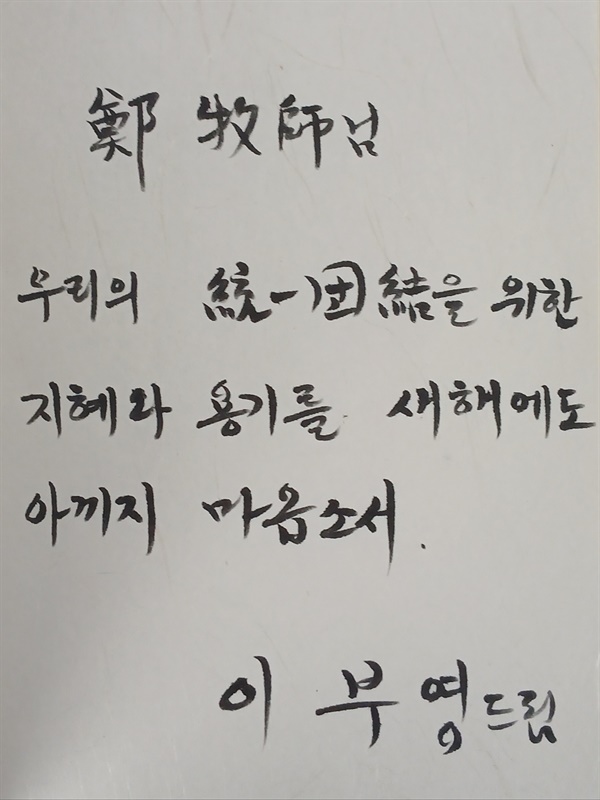 鄭 牧師님
우리의 統一团結을 위한
지혜와 용기를 새해에도
아끼지 마옵소서.
이 부영드림